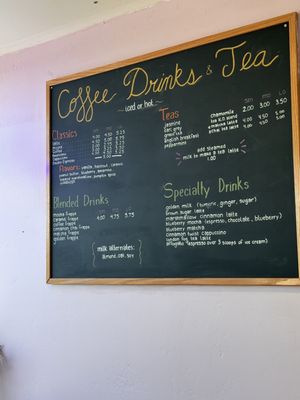 Coffee Drinks & Tea
~ iced or hot ~
Classics
4.00 4.50 5.25
latte
mocha
coffee
Americano
cappuccino
5.00
Flavors: vanilla, hazelnut, caramel
peanut butter, blueberry, banana
toasted marshmallow, pumpkin spice
Teas
SM MD LG
2.00 3.00 3.50
jasmine
earl grey
green tea
english breakfast
peppermint
chamomile
4.00 4.50 5.00
add steamed
milk to make a tea latte
1.00
Blended Drinks
mocha frappe
caramel frappe
coffee frappe
cinnamon chai frappe
matcha frappe
golden frappe
4.00 4.75 5.75
milk alternatives:
almond, oat, soy
Specialty Drinks
golden milk (tumeric, ginger, sugar)
brown sugar latte
marshmallow cinnamon latte
blueberry mocha (espresso, chocolate, blueberry)
blueberry matcha
cinnamon twist cappuccino
london fog tea latte
affogato (espresso over 3 scoops of ice cream)